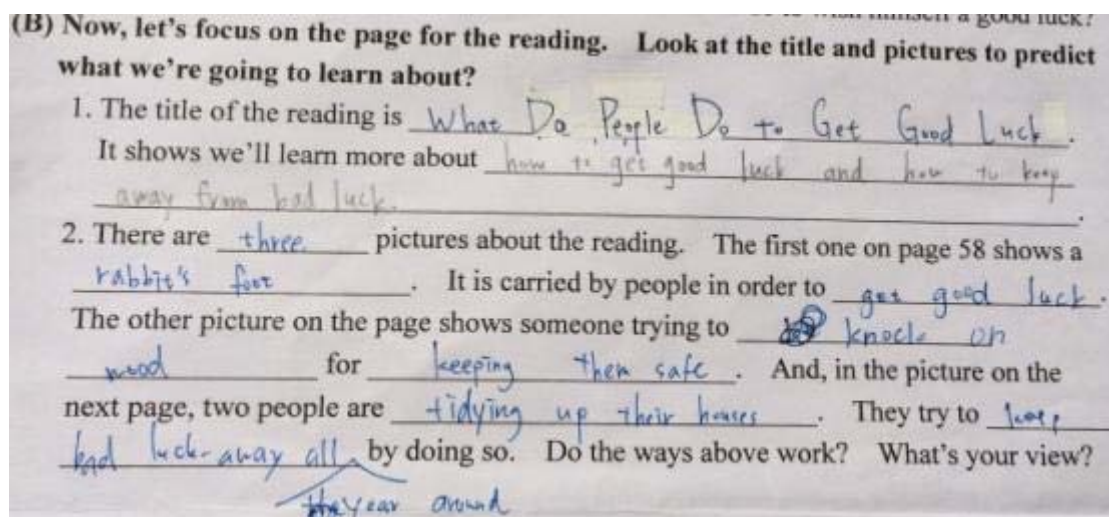 a good luck?
(B) Now, let's focus on the page for the reading. Look at the title and pictures to predict
what we're going to learn about?
1. The title of the reading is What Do People Do to Get Good Luck.
It shows we'll learn more about how to get good luck and how to keep
away from bad luck.
2. There are three pictures about the reading. The first one on page 58 shows a
rabbit's foot. It is carried by people in order to get good luck.
The other picture on the page shows someone trying to knock on
wood for keeping them safe. And, in the picture on the
next page, two people are tidying up their houses. They try to keep
bad luck away all by doing so. Do the ways above work? What's your view?
the year around